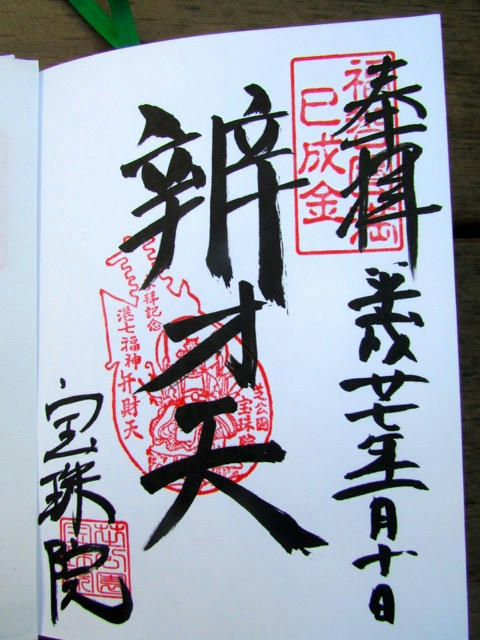 奉拝
平成廿七年一月十日
巳成金
辨才天
拝記念
港七福神弁財天
芝公園
宝珠院
宝珠院